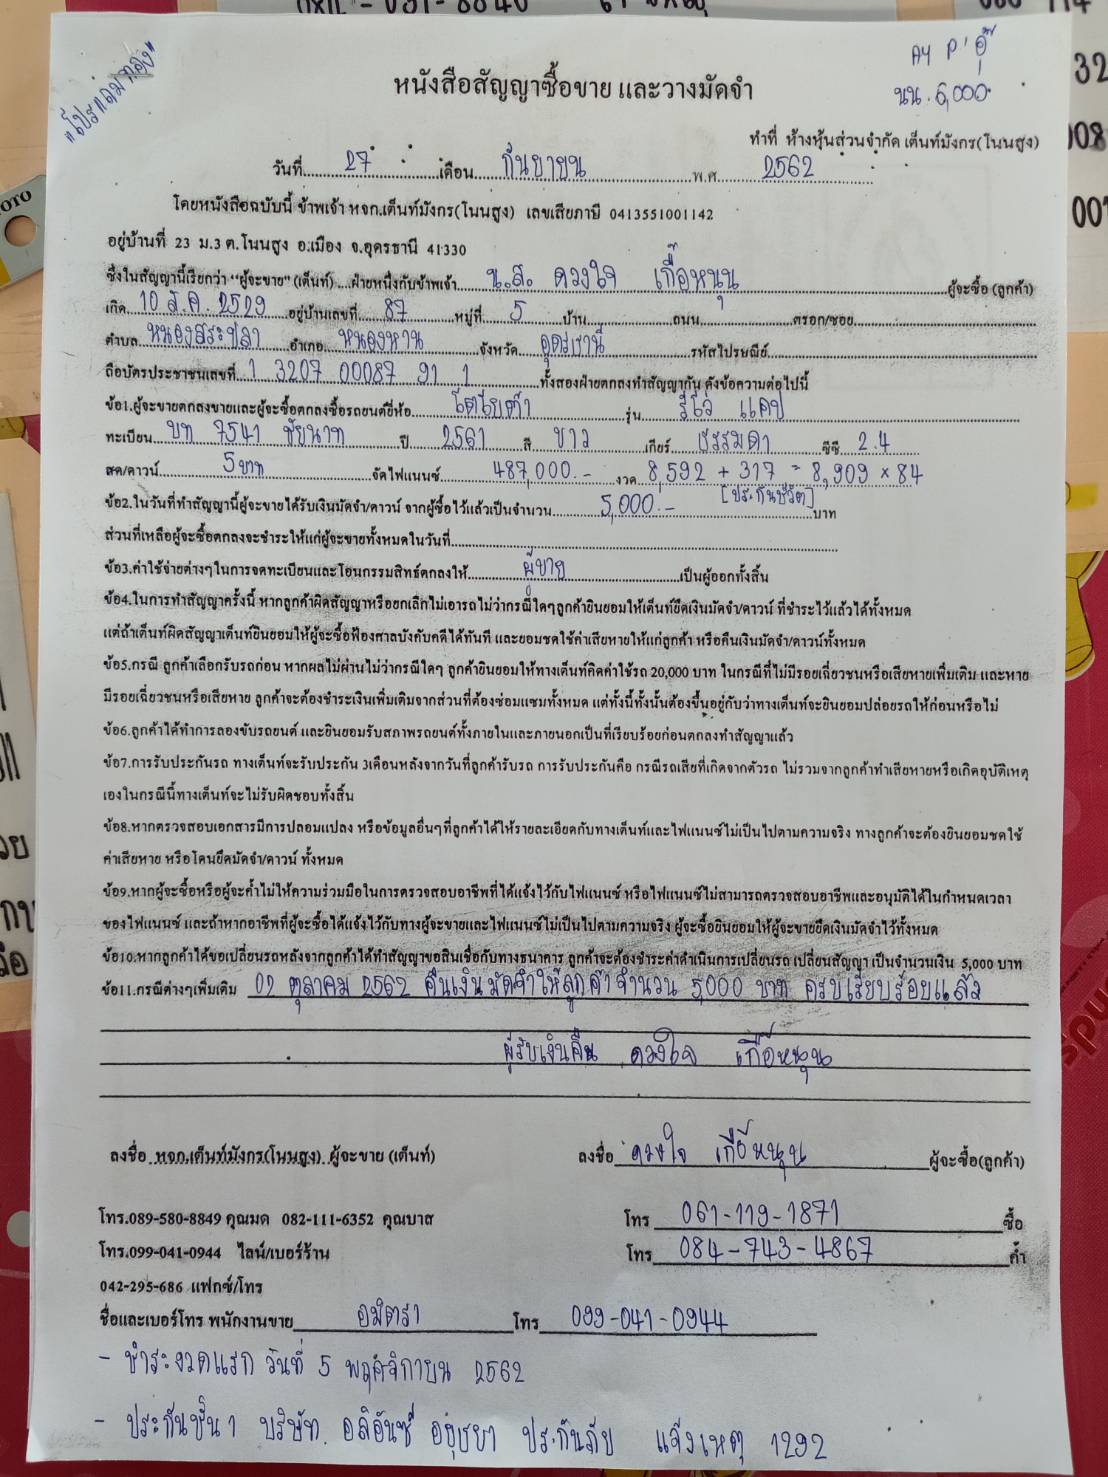 "โปรแถมทอง"
AY P'อุ๊
นน. 6,000
หนังสือสัญญาซื้อขาย และวางมัดจำ
ทำที่ ห้างหุ้นส่วนจำกัด เต็นท์มังกร(โนนสูง)
วันที่ 27 เดือน กันยายน พ.ศ. 2562
โดยหนังสือฉบับนี้ ข้าพเจ้า หจก.เต็นท์มังกร(โนนสูง) เลขเสียภาษี 0413551001142
อยู่บ้านที่ 23 ม.3 ต.โนนสูง อ.เมือง จ.อุดรธานี 41330
ซึ่งในสัญญานี้เรียกว่า "ผู้จะขาย" (เต็นท์) ....ฝ่ายหนึ่งกับข้าพเจ้า น.ส. ดวงใจ เกื้อหนุน ผู้จะซื้อ (ลูกค้า)
เกิด 10 ส.ค. 2529 อยู่บ้านเลขที่ 87 หมู่ที่ 5 บ้าน ถนน ตรอก/ซอย
ตำบล หนองสระปลา อำเภอ หนองหาน จังหวัด อุดรธานี รหัสไปรษณีย์
ถือบัตรประชาชนเลขที่ 1 3207 00087 91 1 ทั้งสองฝ่ายตกลงทำสัญญากัน ดังข้อความต่อไปนี้
ข้อ1.ผู้จะขายตกลงขายและผู้จะซื้อตกลงซื้อรถยนต์ยี่ห้อ โตโยต้า รุ่น รีโว่ แคป
ทะเบียน บท 7541 ชัยนาท ปี 2561 สี ขาว เกียร์ ธรรมดา ซีซี 2.4
สด/ดาวน์ 5 บาท จัดไฟแนนซ์ 487,000.- งวด 8,592 + 317 = 8,909 x 84
[ประกันชีวิต]
ข้อ2.ในวันที่ทำสัญญานี้ผู้จะขายได้รับเงินมัดจำ/ดาวน์ จากผู้ซื้อไว้แล้วเป็นจำนวน 5,000.- บาท
ส่วนที่เหลือผู้จะซื้อตกลงจะชำระให้แก่ผู้จะขายทั้งหมดในวันที่
ข้อ3.ค่าใช้จ่ายต่างๆในการจดทะเบียนและโอนกรรมสิทธิ์ตกลงให้ ผู้ขาย เป็นผู้ออกทั้งสิ้น
ข้อ4.ในการทำสัญญาครั้งนี้ หากลูกค้าผิดสัญญาหรือยกเลิกไม่เอารถไม่ว่ากรณีใดๆลูกค้ายินยอมให้เต็นท์ยึดเงินมัดจำ/ดาวน์ ที่ชำระไว้แล้วได้ทั้งหมด
แต่ถ้าเต็นท์ผิดสัญญาเต็นท์ยินยอมให้ผู้จะซื้อฟ้องศาลบังคับคดีได้ทันที และยอมชดใช้ค่าเสียหายให้แก่ลูกค้า หรือคืนเงินมัดจำ/ดาวน์ทั้งหมด
ข้อ5.กรณี ลูกค้าเลือกรับรถก่อน หากผลไม่ผ่านไม่ว่ากรณีใดๆ ลูกค้ายินยอมให้ทางเต็นท์คิดค่าใช้รถ 20,000 บาท ในกรณีที่ไม่มีรอยเฉี่ยวชนหรือเสียหายเพิ่มเติม และหาย
มีรอยเฉี่ยวชนหรือเสียหาย ลูกค้าจะต้องชำระเงินเพิ่มเติมจากส่วนที่ต้องซ่อมแซมทั้งหมด แต่ทั้งนี้ทั้งนั้นต้องขึ้นอยู่กับว่าทางเต็นท์จะยินยอมปล่อยรถให้ก่อนหรือไม่
ข้อ6.ลูกค้าได้ทำการลองขับรถยนต์ และยินยอมรับสภาพรถยนต์ทั้งภายในและภายนอกเป็นที่เรียบร้อยก่อนตกลงทำสัญญาแล้ว
ข้อ7.การรับประกันรถ ทางเต็นท์จะรับประกัน 3เดือนหลังจากวันที่ลูกค้ารับรถ การรับประกันคือ กรณีรถเสียที่เกิดจากตัวรถ ไม่รวมจากลูกค้าทำเสียหายหรือเกิดอุบัติเหตุ
เองในกรณีนี้ทางเต็นท์จะไม่รับผิดชอบทั้งสิ้น
ข้อ8.หากตรวจสอบเอกสารมีการปลอมแปลง หรือข้อมูลอื่นๆที่ลูกค้าได้ให้รายละเอียดกับทางเต็นท์และไฟแนนซ์ไม่เป็นไปตามความจริง ทางลูกค้าจะต้องยินยอมชดใช้
ค่าเสียหาย หรือโดนยึดมัดจำ/ดาวน์ ทั้งหมด
ข้อ9.หากผู้จะซื้อหรือผู้จะค้ำไม่ให้ความร่วมมือในการตรวจสอบอาชีพที่ได้แจ้งไว้กับไฟแนนซ์ หรือไฟแนนซ์ไม่สามารถตรวจสอบอาชีพและอนุมัติได้ในกำหนดเวลา
ของไฟแนนซ์ และถ้าหากอาชีพที่ผู้จะซื้อได้แจ้งไว้กับทางผู้จะขายและไฟแนนซ์ไม่เป็นไปตามความจริง ผู้จะซื้อยินยอมให้ผู้จะขายยึดเงินมัดจำไว้ทั้งหมด
ข้อ10.หากลูกค้าได้ขอเปลี่ยนรถหลังจากลูกค้าได้ทำสัญญาขอสินเชื่อกับทางธนาคาร ลูกค้าจะต้องชำระค่าดำเนินการเปลี่ยนรถ เปลี่ยนสัญญา เป็นจำนวนเงิน 5,000 บาท
ข้อ11.กรณีต่างๆเพิ่มเติม 02 ตุลาคม 2562 คืนเงินมัดจำให้ลูกค้าจำนวน 5,000 บาท ครบเรียบร้อยแล้ว
ผู้รับเงินคืน ดวงใจ เกื้อหนุน
ลงชื่อ หจก.เต็นท์มังกร(โนนสูง) ผู้จะขาย (เต็นท์) ลงชื่อ ดวงใจ เกื้อหนุน ผู้จะซื้อ(ลูกค้า)
โทร.089-580-8849 คุณมด 082-111-6352 คุณบาส โทร 061-119-1871 ซื้อ
โทร.099-041-0944 ไลน์/เบอร์ร้าน โทร 084-743-4867 ค้ำ
042-295-686 แฟกซ์/โทร
ชื่อและเบอร์โทร พนักงานขาย อมิตรา โทร 099-041-0944
- ชำระงวดแรก วันที่ 5 พฤศจิกายน 2562
- ประกันชั้น 1 บริษัท อลิอันซ์ อยุธยา ประกันภัย แจ้งเหตุ 1292